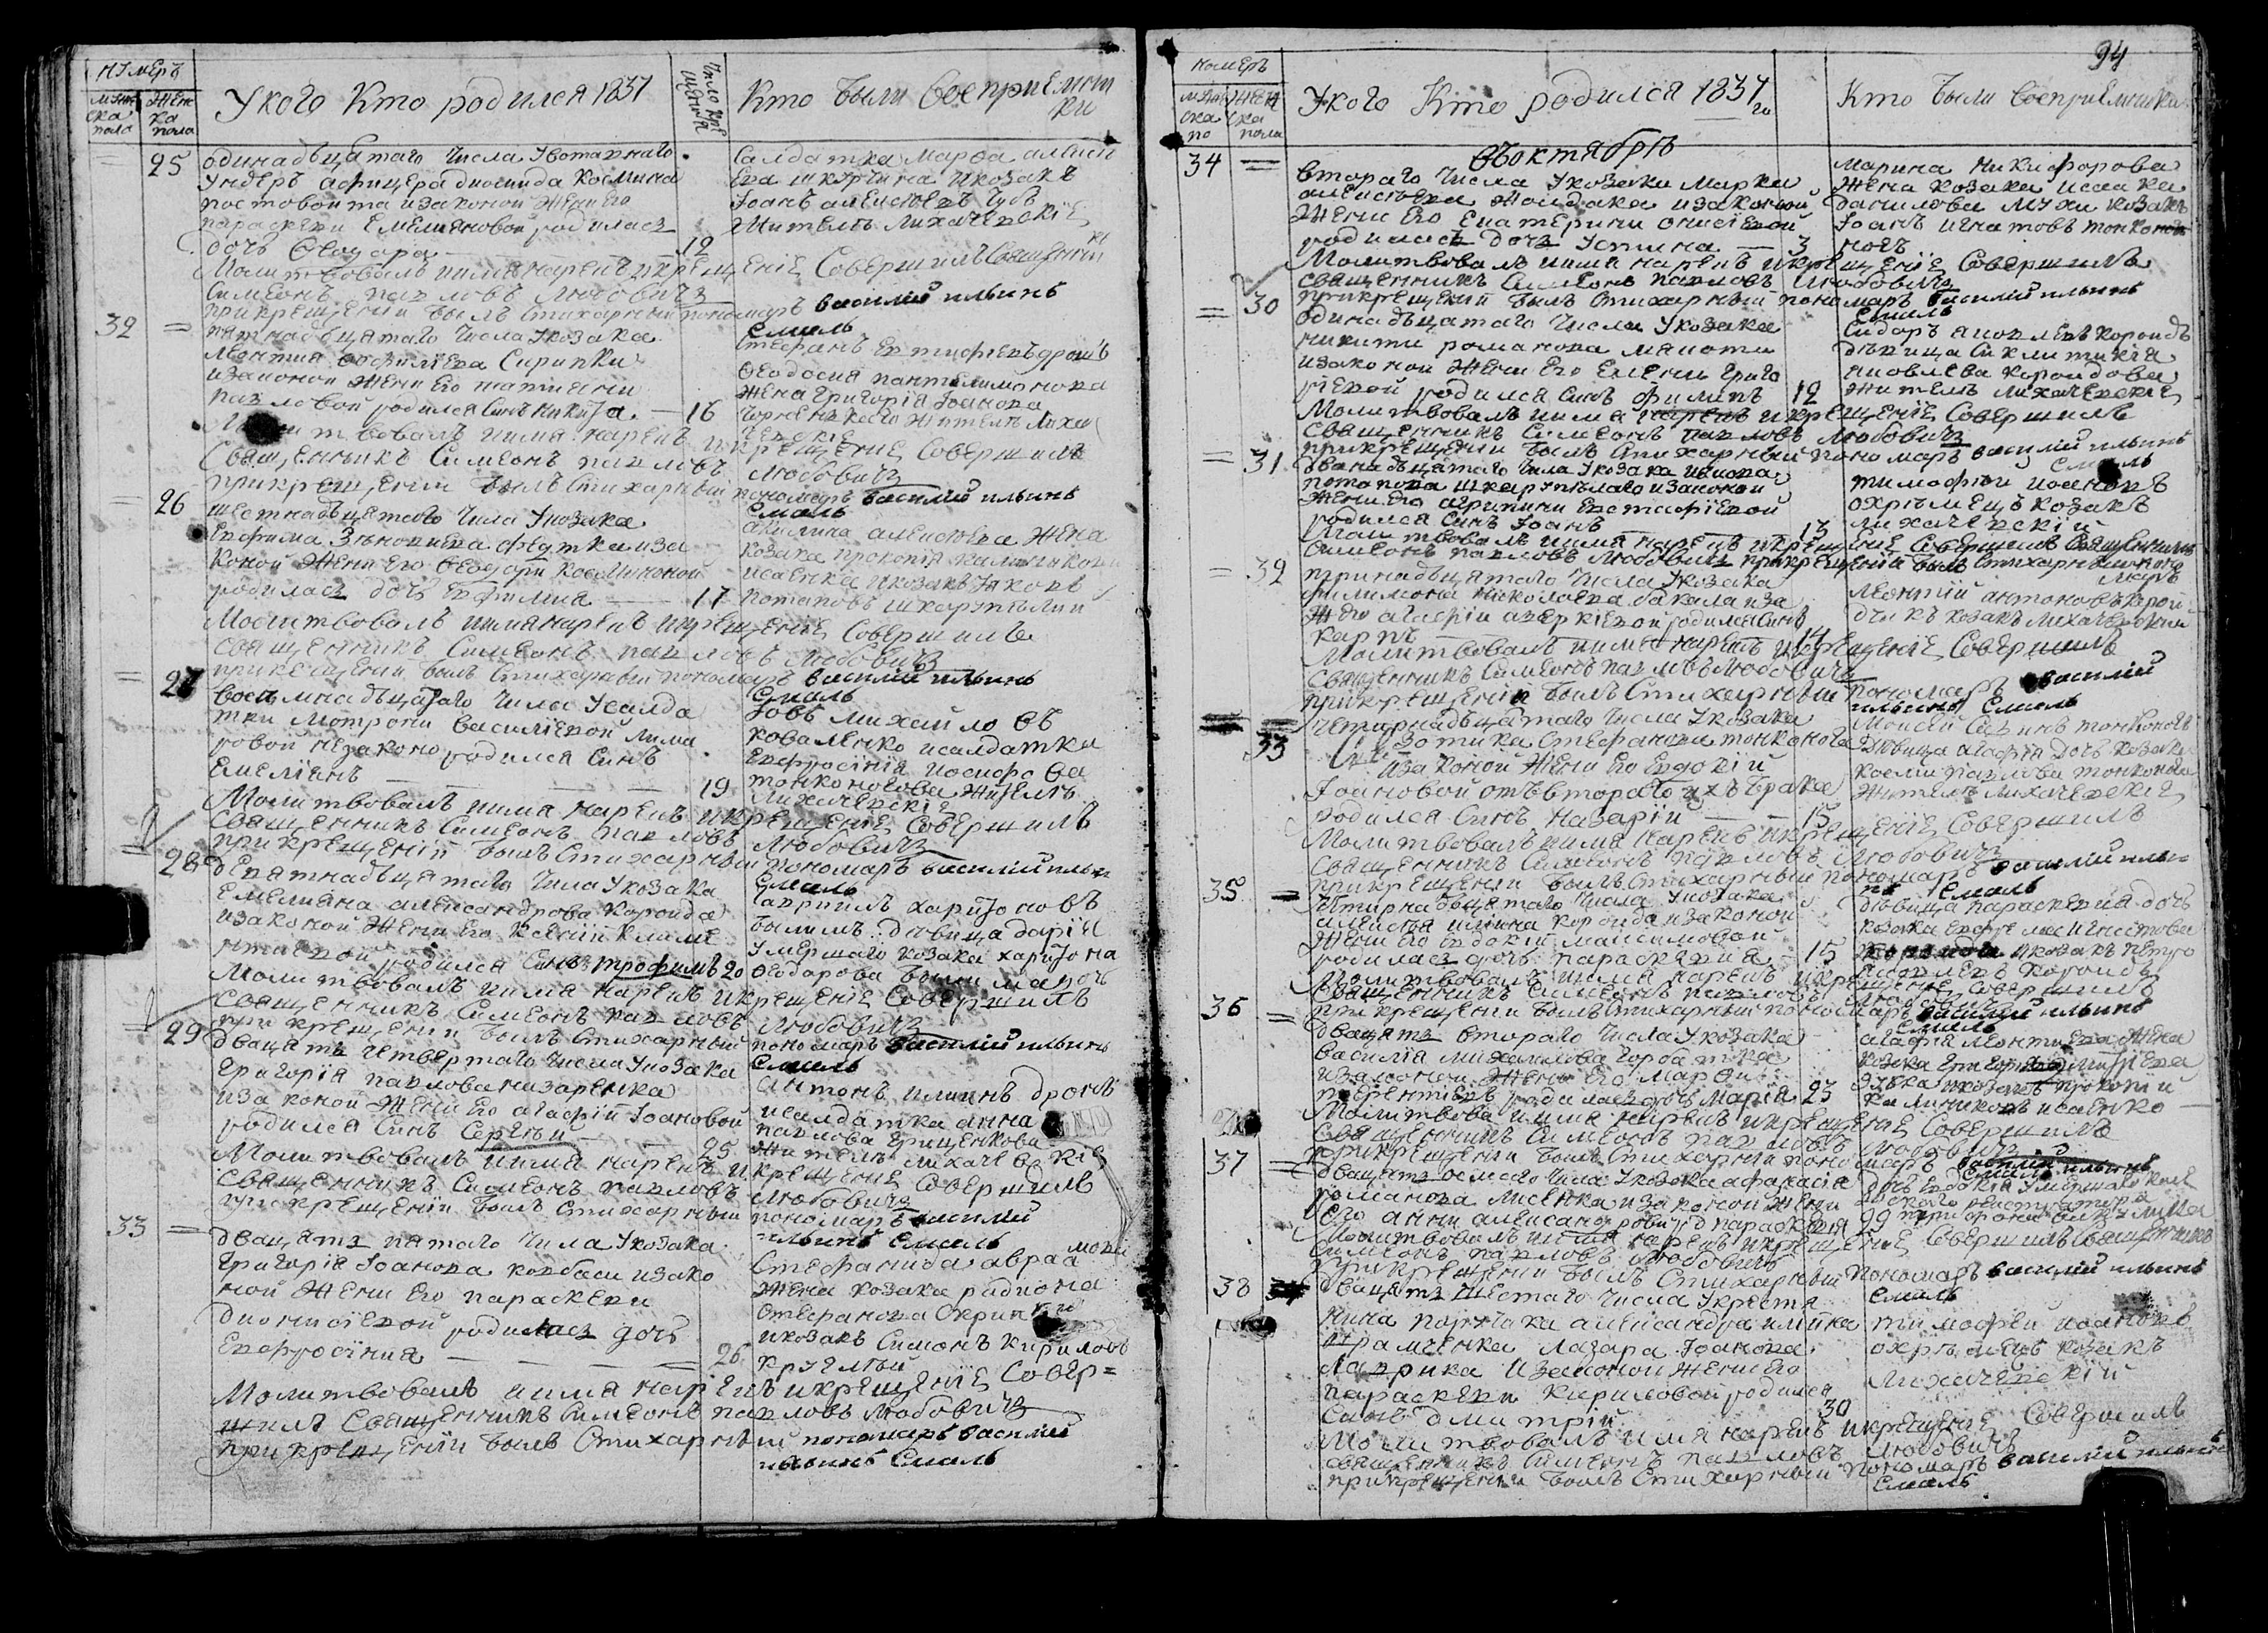 номеръ
муже
ска
пола
жен
ка
пола
Укого Кто родился 1837
Число кре
щения
Кто были Восприемни
ки
25
одинадьцатаго Числа Уотставнаго
Ундеръ афицера диомида Космина
постовойта изаконой Жени его
параскеви Емелияновой родилась
дочь Феодора 12
Салдатка Марфа алексе
ева шкурѣина икозакъ
Iоанъ алексѣевъ Чубъ
Жителѣ лихачевскiе
Молитвовалъ иимя нарекъ икрещенiе Совершилъ Священникъ
Симеонъ павловъ Любовичъ
прикрещенiи былъ Стихарный пономаръ василий ильинъ
Смаль
32
пятнадьцатаго Числа Укозака
Леонтия
изаконой Жени его татияни
павловой родился Синъ Никита — 16
Стефанъ
Феодосия пантелимонова
жена григорiя Iоанова
Жителѣ Лихачевскiе
Молитвовалъ иимя нарекъ икрещенiе Совершилъ
Священникъ Симеонъ павловъ Любовичъ
прикрещенiи былъ Стихарный пономаръ василий ильинъ
Смаль
26
шестнадьцатаго Числа Укозака
Ефима изa
коной Жени его Феодори Косминой
родилась дочь Ефимия — 17
акилина алексѣева Жена
козака прокопiя калиникова
исаенка икозакъ Iяковъ
потаповъ шкарупѣлий
Молитвовалъ иимя нарекъ икрещенiе Совершилъ
священникъ Симеонъ павловъ Любовичъ
прикрещенiи былъ Стихарный пономаръ василий ильинъ
Смаль
27
восьмнадьцатаго Числа Усалда
тки Мотрони василiевой лима
ровой незаконо родился Синъ
Емелiянъ — 19
Iовъ михайловъ
коваленко исалдатка
Ефросiния иосифова
тонконогова Жителѣ
Лихачевскiе
Молитвовалъ иимя нарекъ икрещенiе Совершилъ
Священникъ Симеонъ павловъ Любовичъ
прикрещенiи былъ Стихарный пономаръ василий ильин
Смаль
28
девятнадьцатаго Числа Укозака
Емелияна александрова Короида
изаконой Жени его Ксенiи Клеме
нтиевой родился Синъ трофимъ 20
Гаврiилъ харитоновъ
билимъ девица дарiя
умершаго козака харитона
феодорова билима дочь
Молитвовалъ иимя нарекъ икрещенiе Совершилъ
Священникъ Симеонъ павловъ Любовичъ
прикрещенiи былъ Стихарный пономаръ василий ильинъ
Смаль
29
двацать четвертаго Числа Укозака
Григорiя павлова назаренка
изаконой Жени его агафiи Iоановой
родился Синъ Сергѣй — 25
антонъ илиинъ дронь
исалдатка анна
павлова грищенкова
Жителѣ лихачевскiе
Молитвовалъ иимя нарекъ икрещенiе Совершилъ
Священникъ Симеонъ павловъ Любовичъ
прикрещенiи былъ Стихарный пономаръ василий
ильинъ Смаль
33
двацать пятаго Числа Укозака
Григорiя Iоанова ковбаси изако
ной Жени его параскеви
дионисiевой родилась дочь
Евфросiния — 26
Стефанида авраамова
Жена козака радиона
Стефанова
икозакъ Симонъ кириловъ
круглий
Молитвовалъ иимя нарекъ икрещенiе Совер=
шилъ Священникъ Симеонъ павловъ Любовичъ
прикрещенiи былъ Стихарный пономаръ василий
ильинъ Смаль
94
номеръ
муже
ска
по
жен
ска
пола
Укого Кто родился 1837 го
Кто были Восприемники
Въоктябрѣ
34
втораго Числа Укозака Марка
алексѣева Жолдака изаконой
Жени его Екатерини
родилась дочь Устина — 3
марина Никифорова
Жена козака исаака
данилова мухи козакъ
Iоанъ игнатовъ тонконогъ
Молитвовалъ иимя нарекъ икрещенiе Совершилъ
священникъ Симеонъ павловъ Любовичъ
прикрещенiи былъ Стихарный пономаръ василий ильинъ
Смаль
30
Одинадьцатаго Числа Укозака
никити романова
изаконой Жени его Елени Григо
риевой родился Синъ Филипъ 12
Сидоръ яковлевъ короидъ
девица Сиклитикiя
яковлева короидова
Жителѣ лихачевскiе
Молитвовалъ иимя нарекъ икрещенiе Совершилъ
священникъ Симеонъ павловъ Любовичъ
прикрещенiи былъ Стихарный пономаръ василий ильинъ
Смаль
31
дванадьцатаго Числа Укозака иякова
потапова шкарупѣлаго изаконой
Жени его агрипини евстафiевой
родился Синъ Iоанъ 13
тимофѣй иоановъ
охрѣмецъ козакъ
лихачевскiй
Молитвовалъ иимя нарекъ икрещенiе Совершилъ Священникъ
Симеонъ павловъ Любовичъ прикрещенiи былъ Стихарный поно
маръ
32
тринадьцатаго Числа Укозака
филимона николаева бакала иза
Ж его агафiи аверкiевой родился Синъ
карпъ 14
Леонтий антоновъ
козакъ Лихачевский
Молитвовалъ иимя нарекъ икрещенiе Совершилъ
священникъ Симеонъ павловъ Любовичъ
прикрещенiи былъ Стихарный пономаръ василий
ильинъ Смаль
33
Четирнадьцатаго Числа Укозака
Зотика Стефанова тонконога
изаконой Жени его Евдокiй
Iоановой отъвтораго ихъ брака
родился Синъ Назарiй — 15
Моисей Савинъ тонконогъ
девица агафiя дочь козака
косми павлова тонконога
Жителѣ лихачевскiе
Молитвовалъ иимя нарекъ икрещенiе Совершилъ
священникъ Симеонъ павловъ Любовичъ
прикрещенiи былъ Стихарный пономаръ василий ильи=
нъ Смаль
35
Четирнадьцатаго Числа Укозака
алексѣя илиина короида изаконой
Жени его евдокiй максимовой
родилась дочь параскевия — 15
девица параскевия дочь
козака
икозакъ петро
яковлевъ короидъ
Молитвовалъ иимя нарекъ икрещенiе Совершилъ
священникъ Симеонъ павловъ Любовичъ
прикрещенiи былъ Стихарный пономаръ василий ильинъ
Смаль
36
двацать втораго Числа Укозака
василiя михаилова горбатка
изаконой Жени его Марфи
родилась дочь Марiя 23
агафiя Леонтиева Жена
козака григория
икозакъ прокопий
калиниковъ исаенко
Молитвовалъ иимя нарекъ икрещенiе Совершилъ
священникъ Симеонъ павловъ Любовичъ
прикрещенiи былъ Стихарный пономаръ василий ильинъ
Смаль
37
двацать осмаго Числа Укозака афанасiя
романова лисенка изаконой Жени
его анни александровой д параскевия 29
дочь евдокiя умершаго
регистратора
Молитвовалъ иимя нарекъ икрещенiе Совершилъ Священникъ
Симеонъ павловъ Любовичъ
прикрещенiи былъ Стихарный пономаръ василий ильинъ
Смаль
38
двацать шестаго Числа Укрестя
нина поручика александра
Лазара Iоанова
Лаврика изаконой Жени его
параскеви кириловой родился
Синъ дмитрiй 30
тимофѣй иоановъ
охрѣмецъ козакъ
лихачевскiй
Молитвовалъ иимя нарекъ икрещенiе Совершилъ
священникъ Симеонъ павловъ Любовичъ
прикрещенiи былъ Стихарный пономаръ василий ильинъ
Смаль